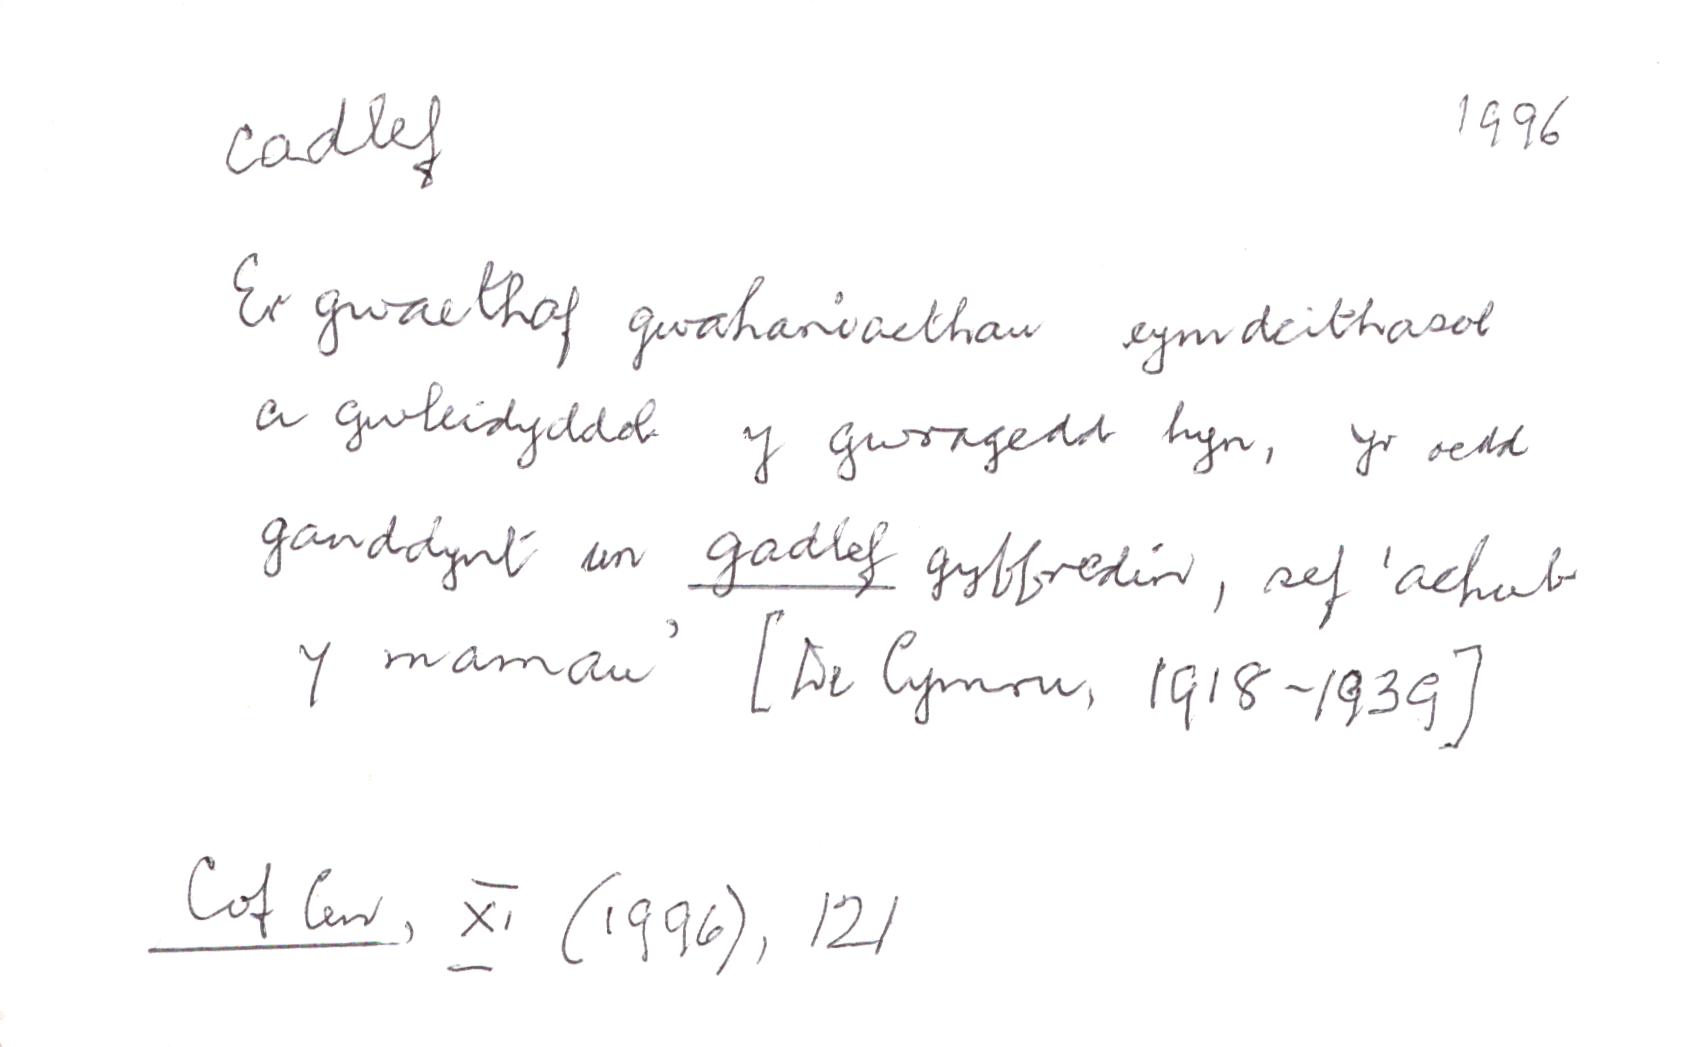 cadlef 1996
Er gwaethaf gwahaniaethau cymdeithasol
a gwleidyddol y gwragedd hyn, yr oedd
ganddynt un gadlef gyffredin, sef 'achub
y mamau' [De Cymru, 1918-1939]
Cof Cen, XI (1996), 121